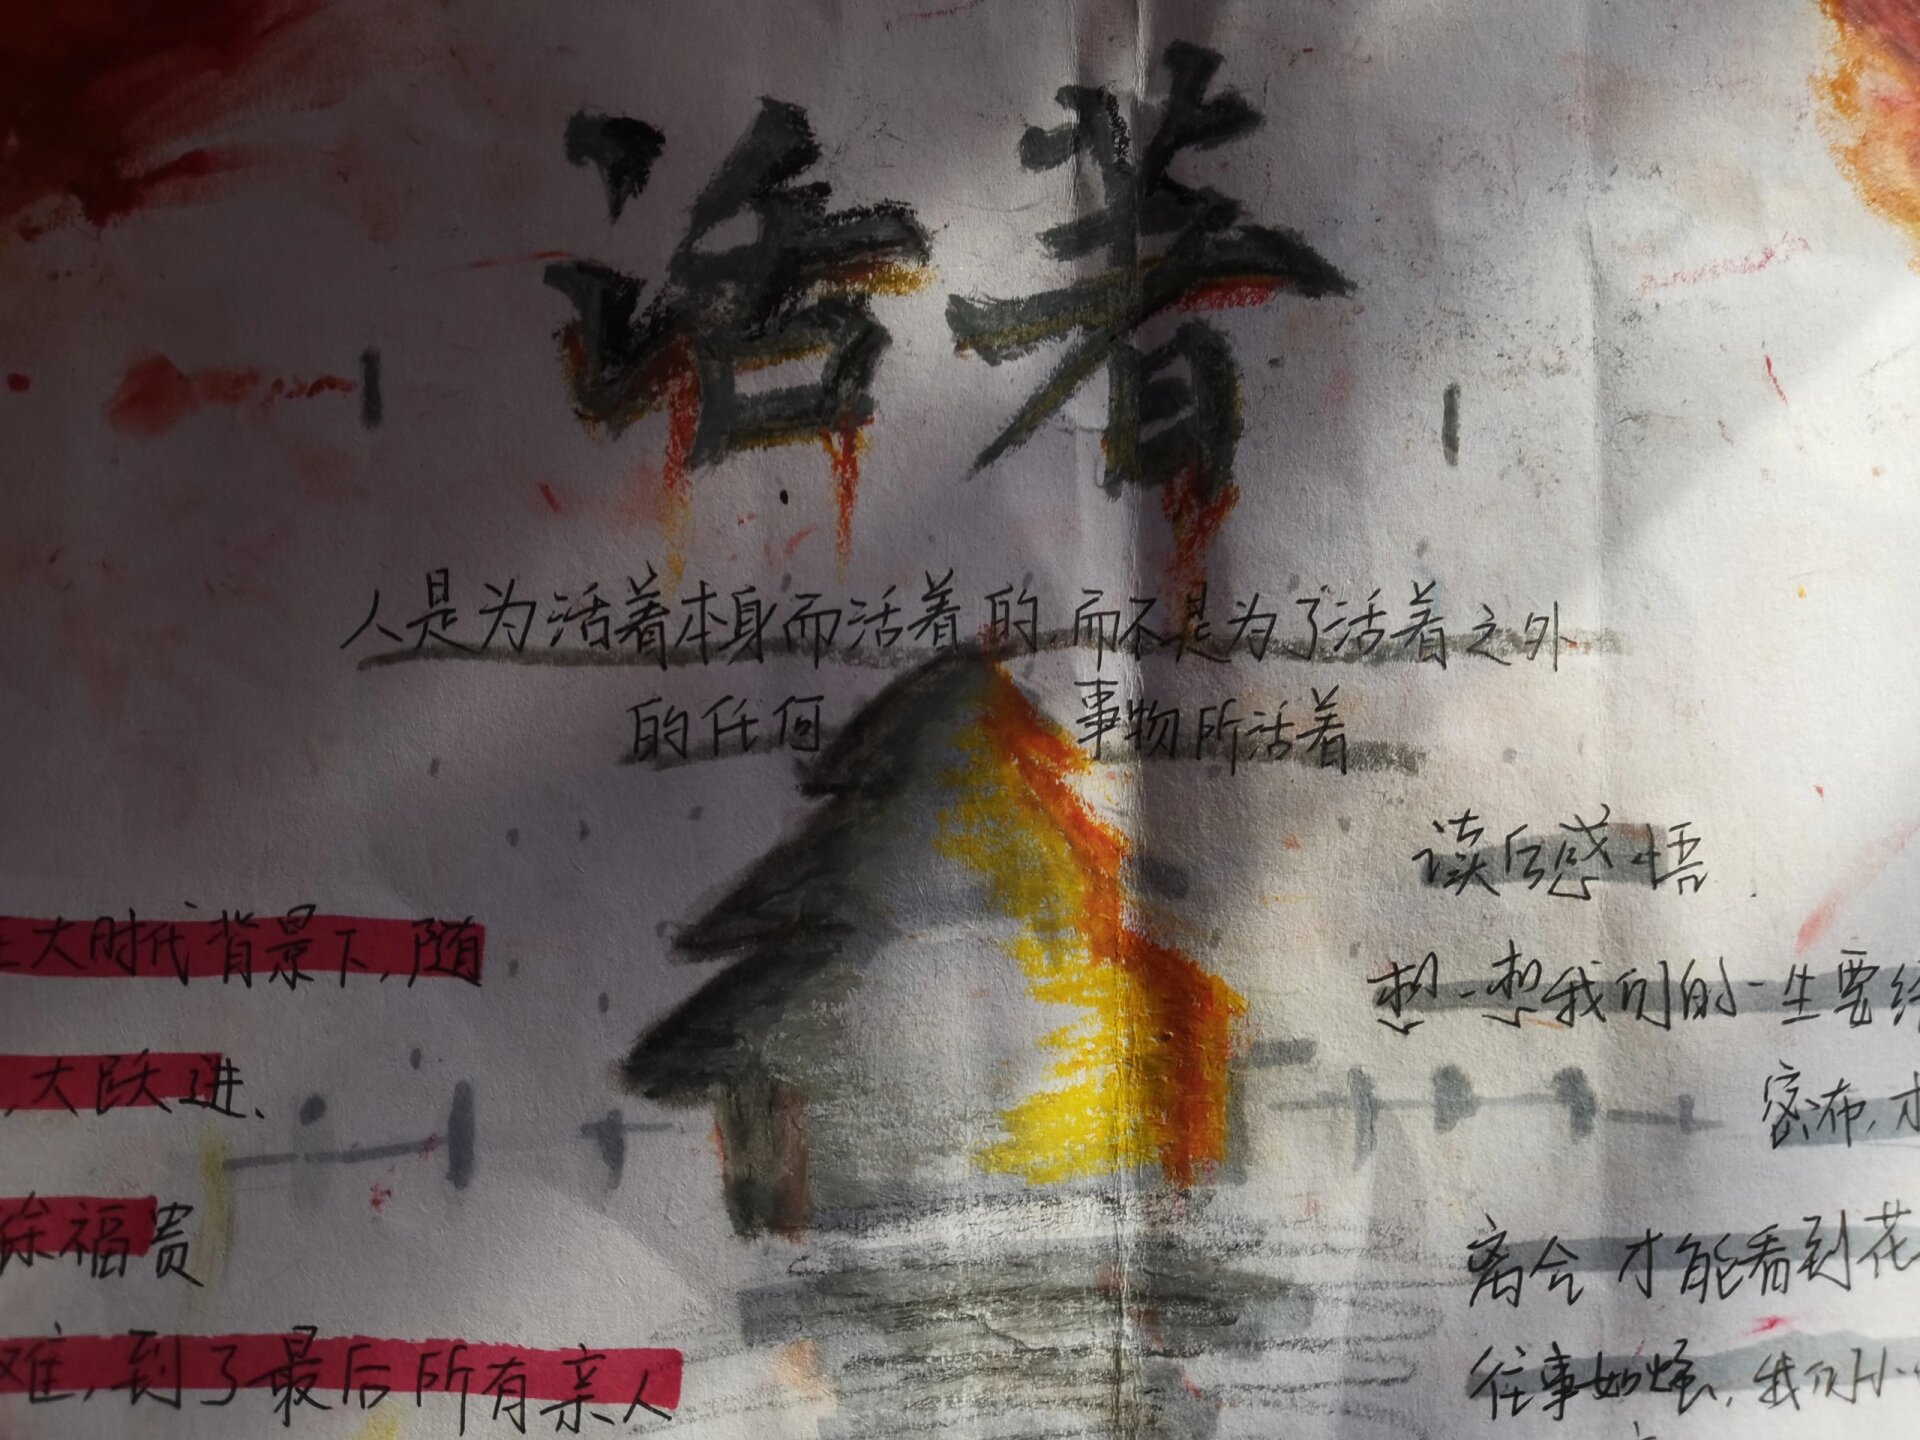 活着
人是为活着本身而活着的,而不是为了活着之外
的任何事物所活着
读后感悟
大时代背景下,随
想一想我们的一生要经
,大跃进、
密布,才
徐福贵
离合 才能看到花
难,到了最后所有亲人
往事如烟,我们小心